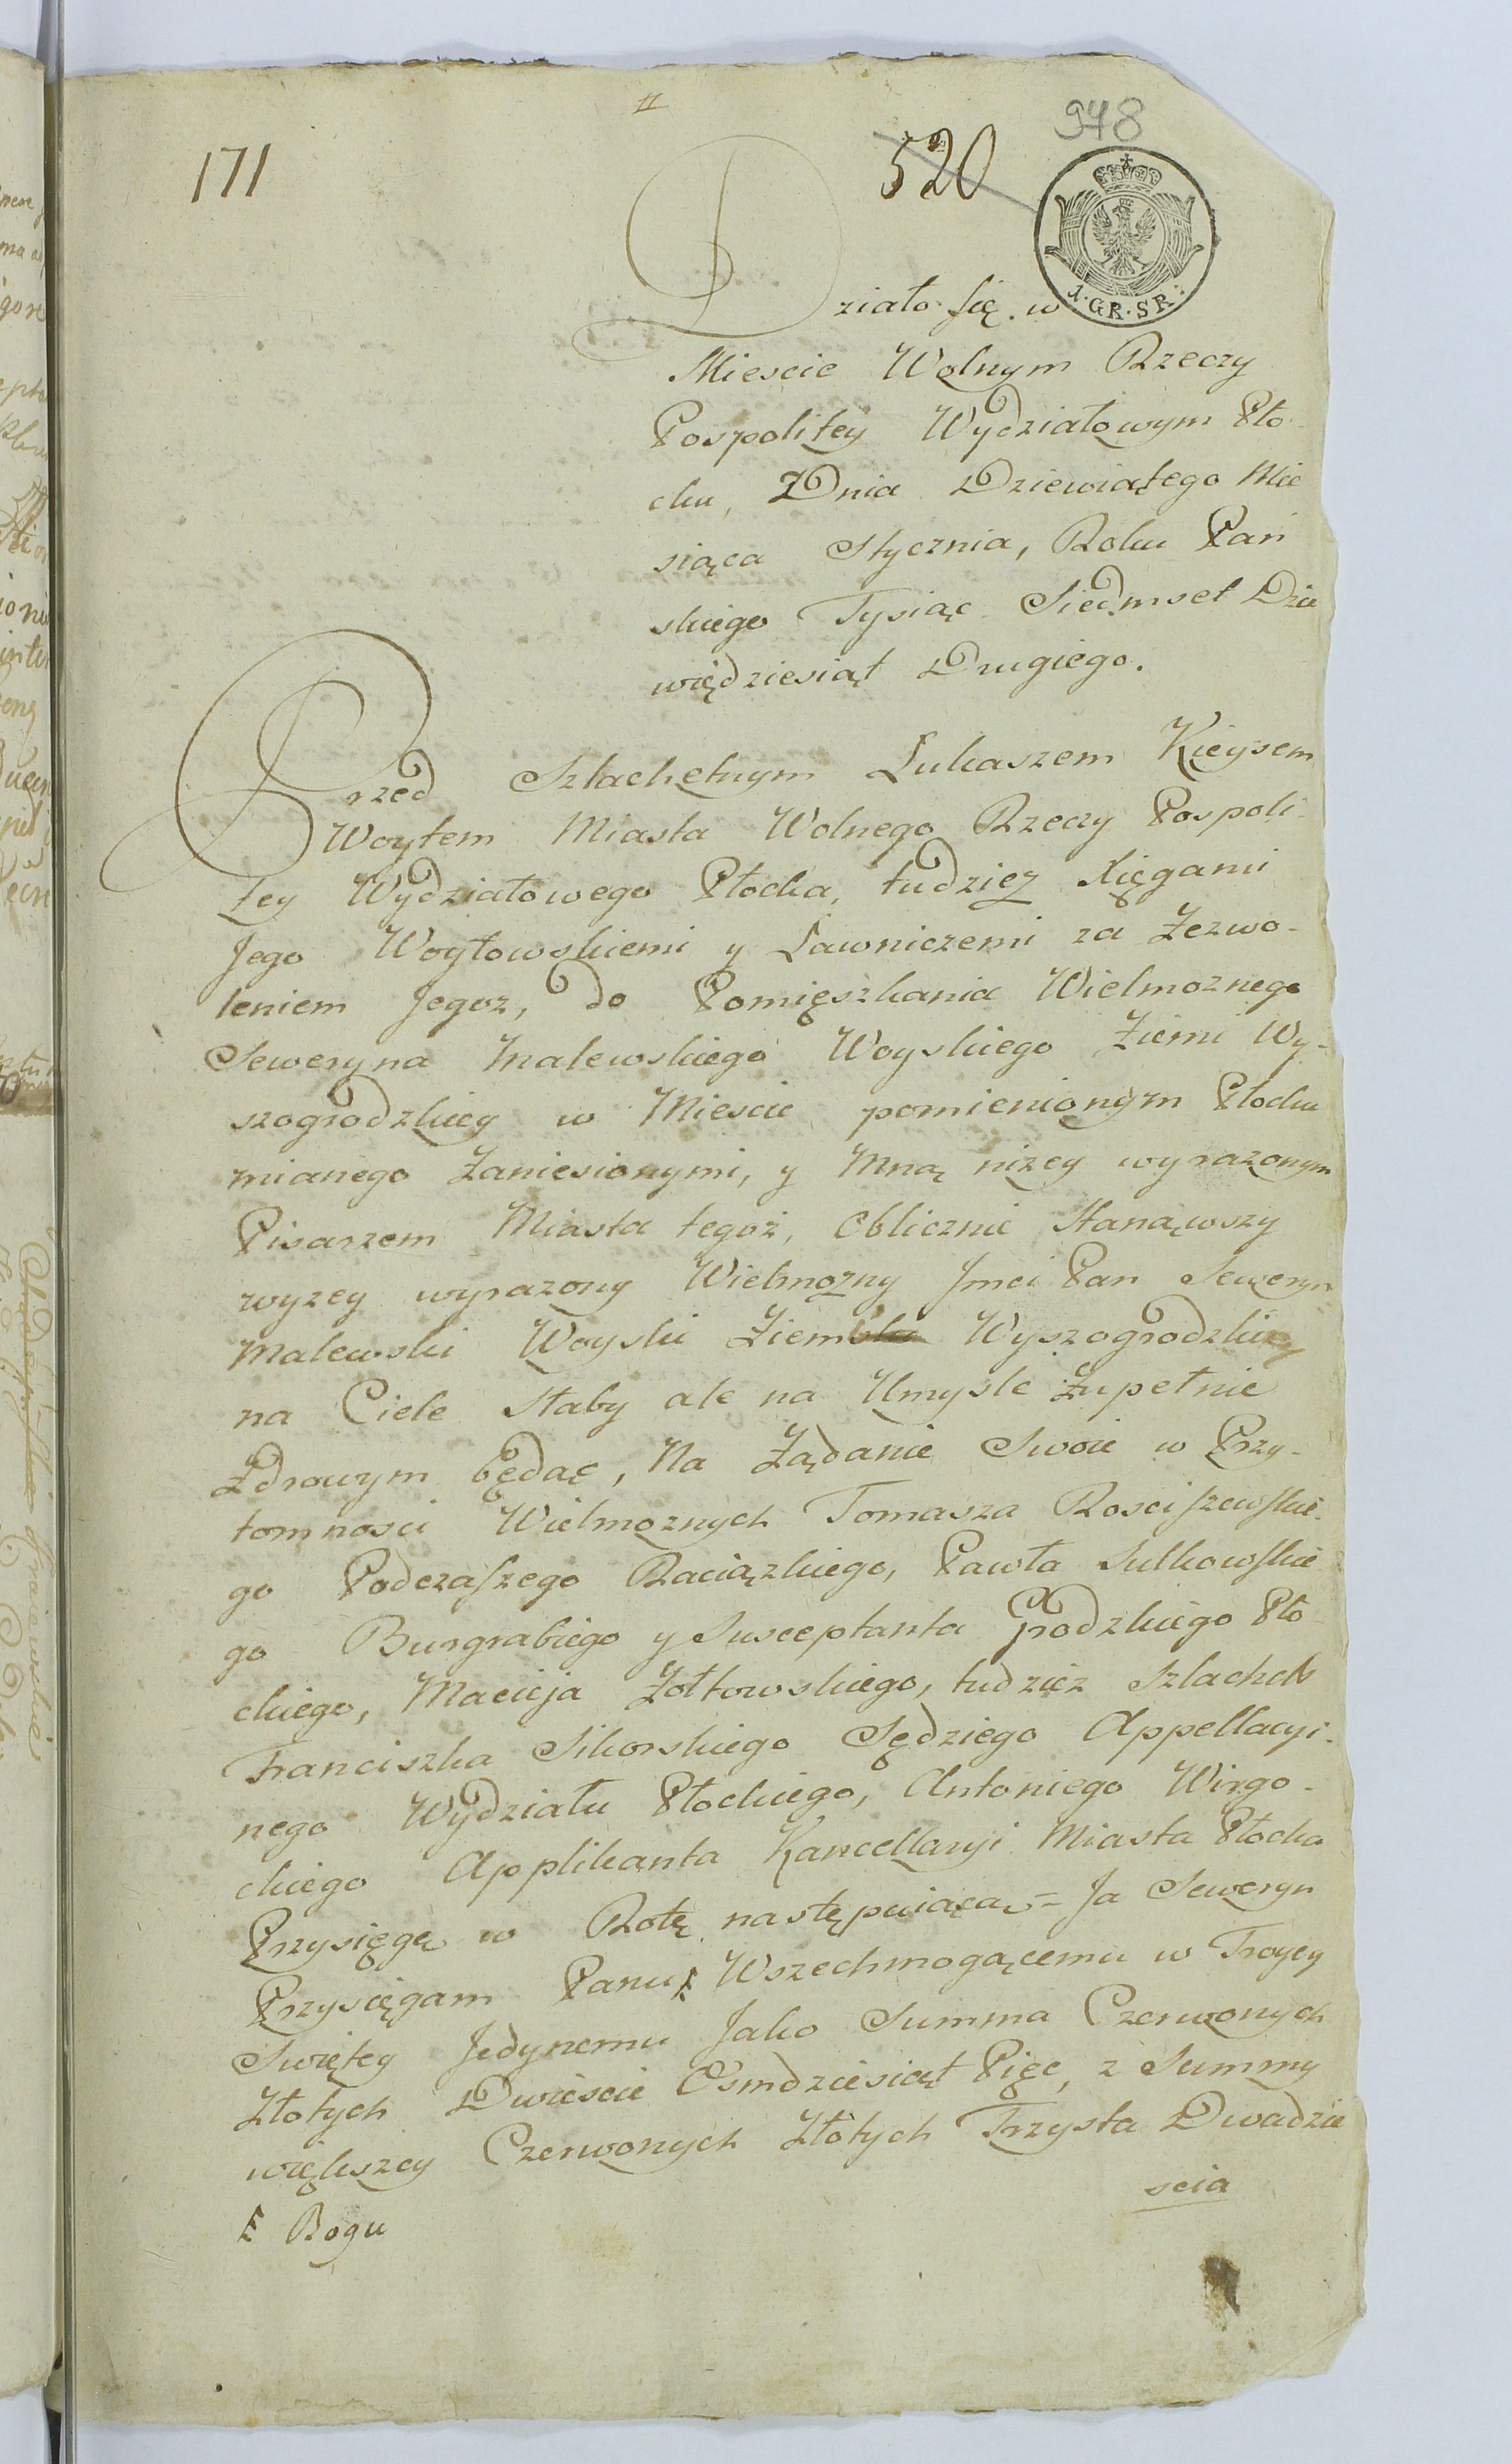 II
948
171
520
1. GR. SR:
Działo się w
Miescie Wolnym Rzeczy
Pospolitey Wydziałowym Pło-
cku, Dnia Dziewiątego Mie
siąca Stycznia, Roku Pań
skiego Tysiąc Siedmset Dzie
więdziesiąt Drugiego.
Przed Szlachetnym Łukaszem Kieysem
Woytem Miasta Wolnego Rzeczy Pospoli-
tey Wydziałowego Płocka, tudzięz Xięgami
Jego Woytowskiemi y Ławniczemi za Zezwo-
leniem Jegoz, do Pomięszkania Wielmoznego
Seweryna Malewskiego Woyskiego Ziemi Wy-
szogrodzkiey w Miescie pomienionym Płocku
mianego Zaniesionymi, y Mną nizey wyrazonym
Pisarzem Miasta tegoż, Oblicznie Stanąwszy
wyzey wyrazony Wielmozny Jmci Pan Seweryn
Malewski Woyski Ziem Wyszogrodzkiey
na Ciele Słaby ale na Umysle Zupełnie
Zdrowym będąc, Na Żądanie Swoie w Przy-
tomnosci Wielmoznych Tomasza Rosciszewskie-
go Podczaszego Raciązkiego, Pawła Sulkowskie
go Burgrabiego y Susceptanta Grodzkiego Pło
ckiego, Macieja Zołtowskiego, tudziez Szlachch
Franciszka Sikorskiego Sędziego Appellacyi-
nego Wydziału Płockiego, Antoniego Wirgo-
ckiego Applikanta Kancellaryi Miasta Płocka
Przysięgę w Rotę następuiącą = Ja Seweryn
Przysięgam Panu Wszechmogącemu w Troycy
Swiętey Jedynemu Jako Summa Czerwonych
Złotych Dwiescie Osmdziesiąt Pięc, z Summy
większey Czerwonych Złotych Trzysta Dwadzie
scia
Bogu